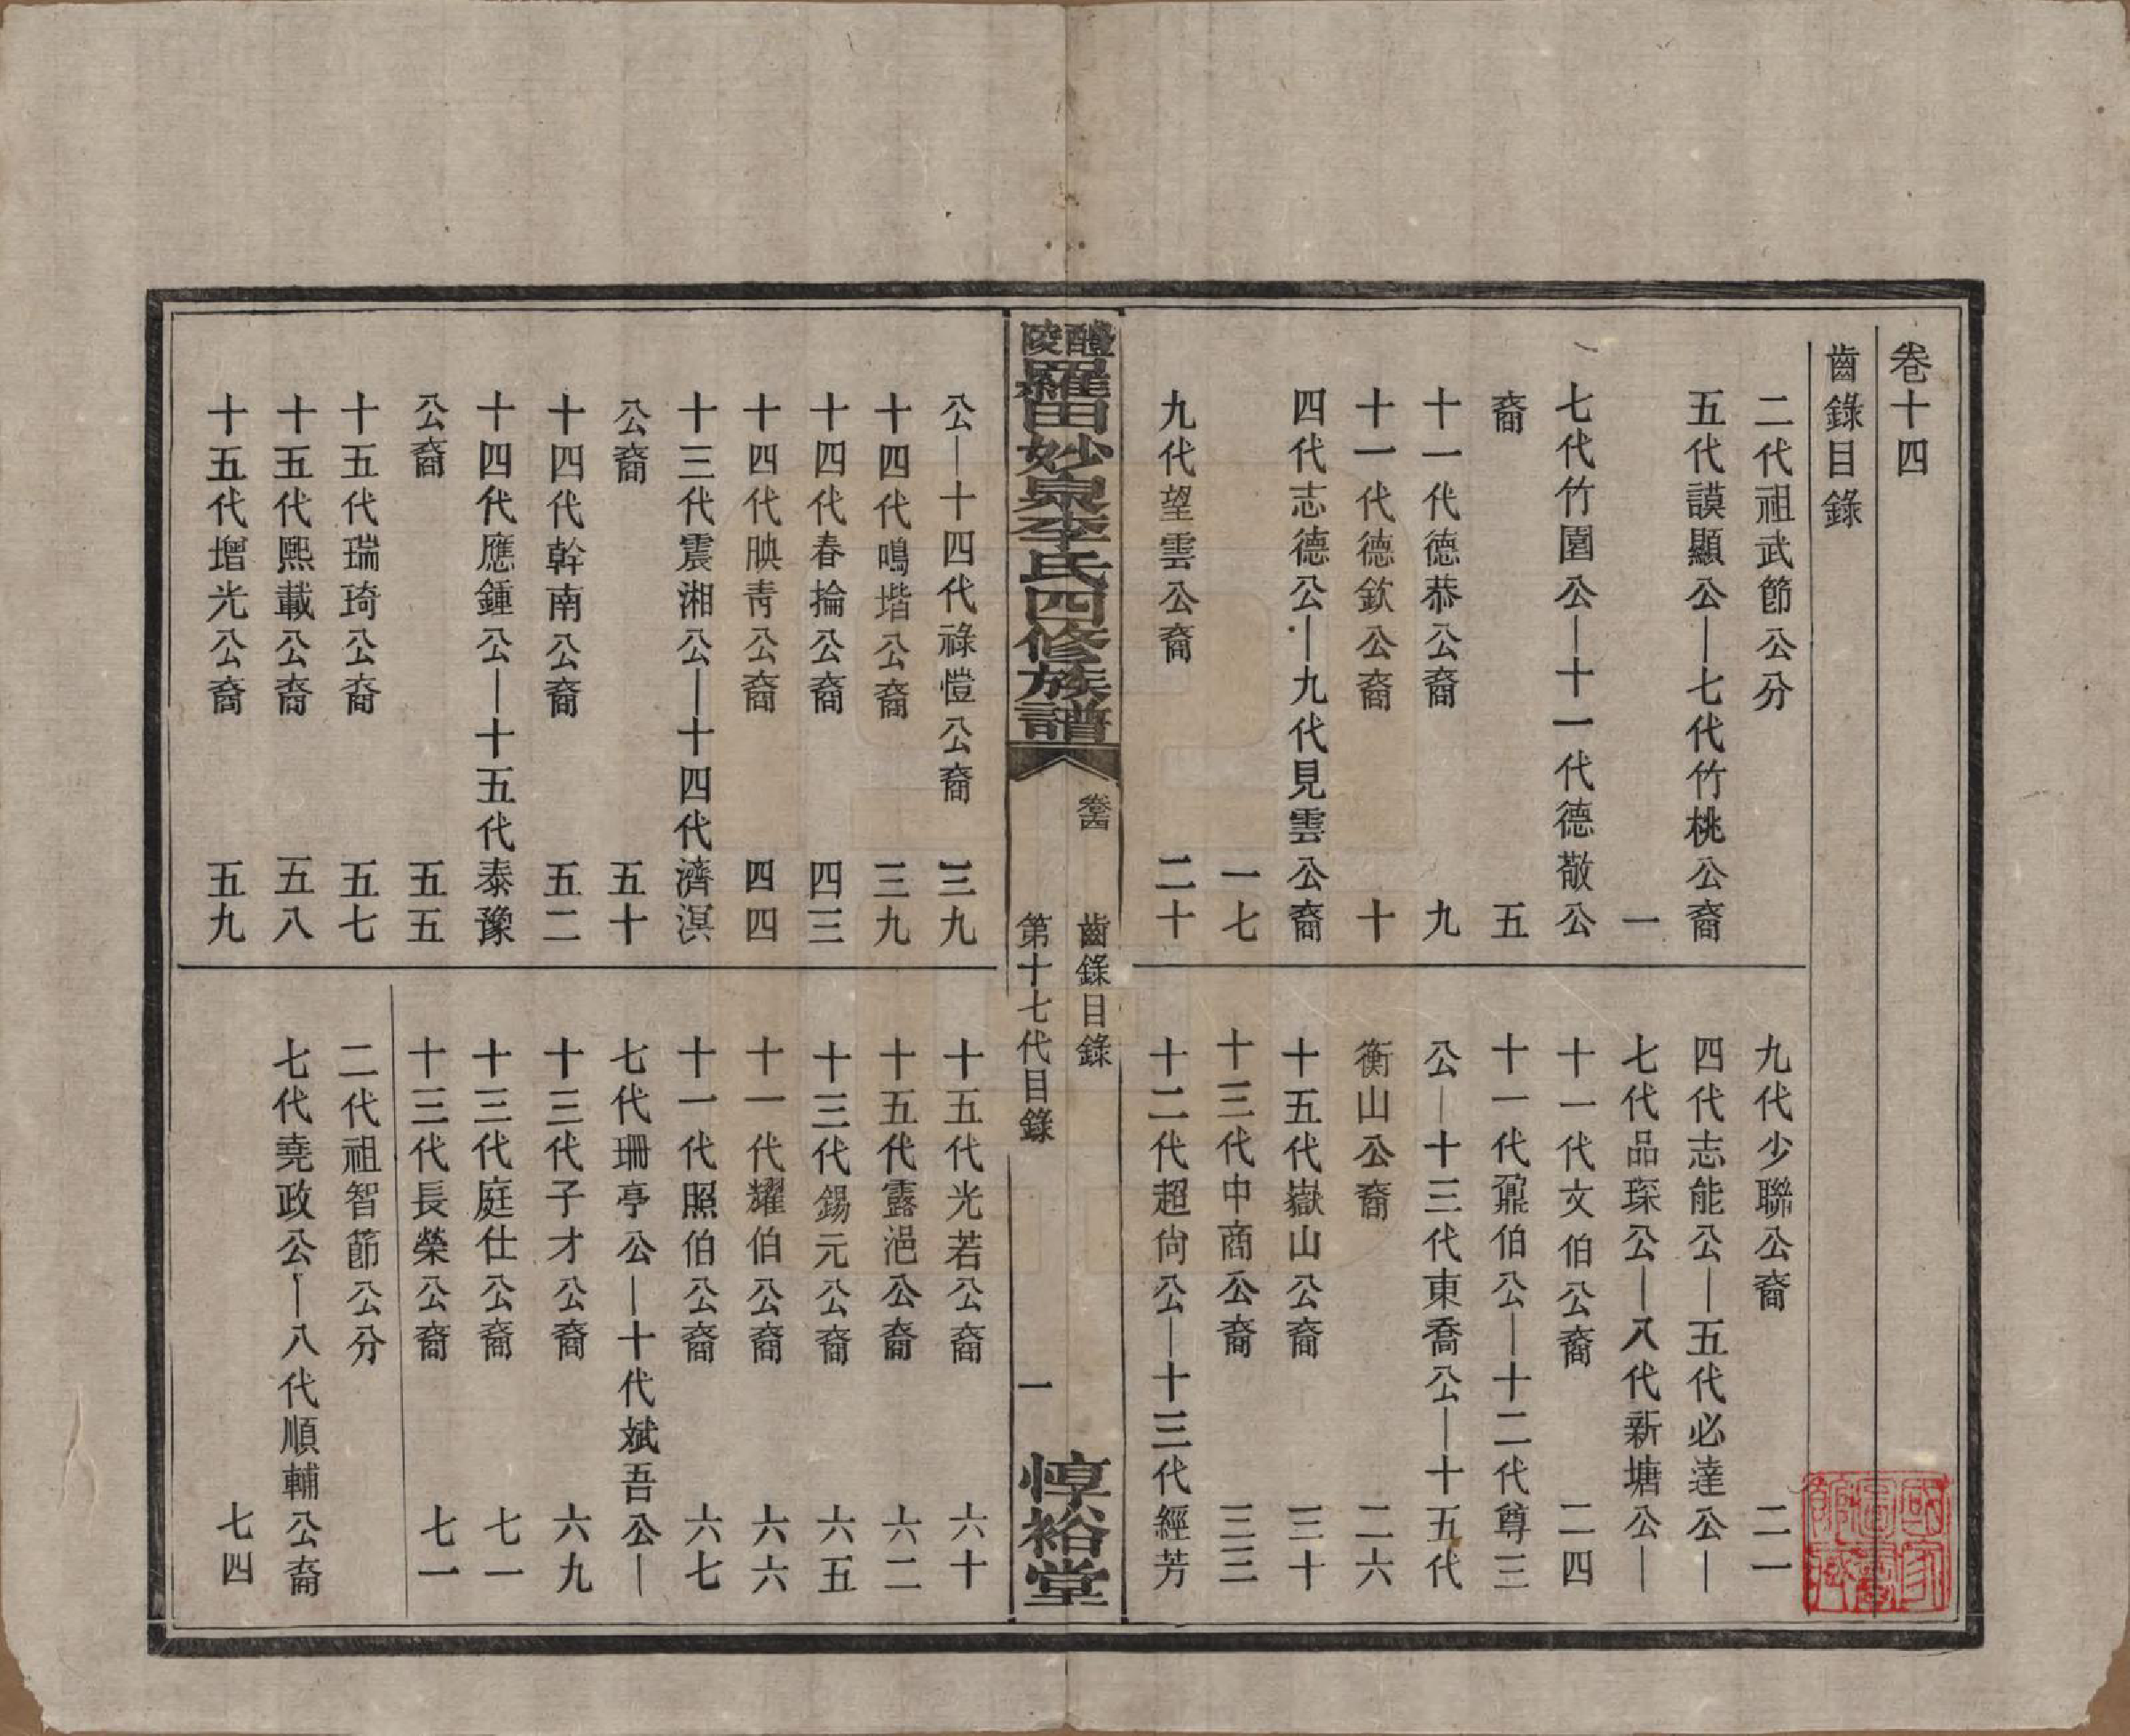 卷十四
齒錄目錄
二代祖武節公分
五代謨顯公—七代竹桃公裔
一
七代竹園公—十一代德敬公
裔　五
十一代德恭公裔　九
十一代德欽公裔　十
四代志德公—九代見雲公裔
一七
九代望雲公裔　二十
九代少聯公裔　二一
四代志能公—五代必達公—
七代品琛公—八代新塘公—
十一代文伯公裔　二四
十一代鼐伯公—十二代尊三
公—十三代東喬公—十五代
衡山公裔　二六
十五代嶽山公裔　三十
十三代中商公裔　三三
十二代超尙公—十三代經芳
醴陵羅田妙泉李氏四修族譜
卷十四　齒錄目錄
第十七代目錄　一
惇裕堂
公—十四代祿愷公裔　三九
十四代鳴堦公裔　三九
十四代春掄公裔　四三
十四代腆靑公裔　四四
十三代震湘公—十四代濟溟
公裔　五十
十四代幹南公裔　五二
十四代應鍾公—十五代泰豫
公裔　五五
十五代瑞琦公裔　五七
十五代熙載公裔　五八
十五代增光公裔　五九
十五代光若公裔　六十
十五代露浥公裔　六二
十三代錫元公裔　六五
十一代耀伯公裔　六六
十一代照伯公裔　六七
七代珊亭公—十代斌吾公—
十三代子才公裔　六九
十三代庭仕公裔　七一
十三代長榮公裔　七一
二代祖智節公分
七代堯政公—八代順輔公裔
七四
國家圖書館藏